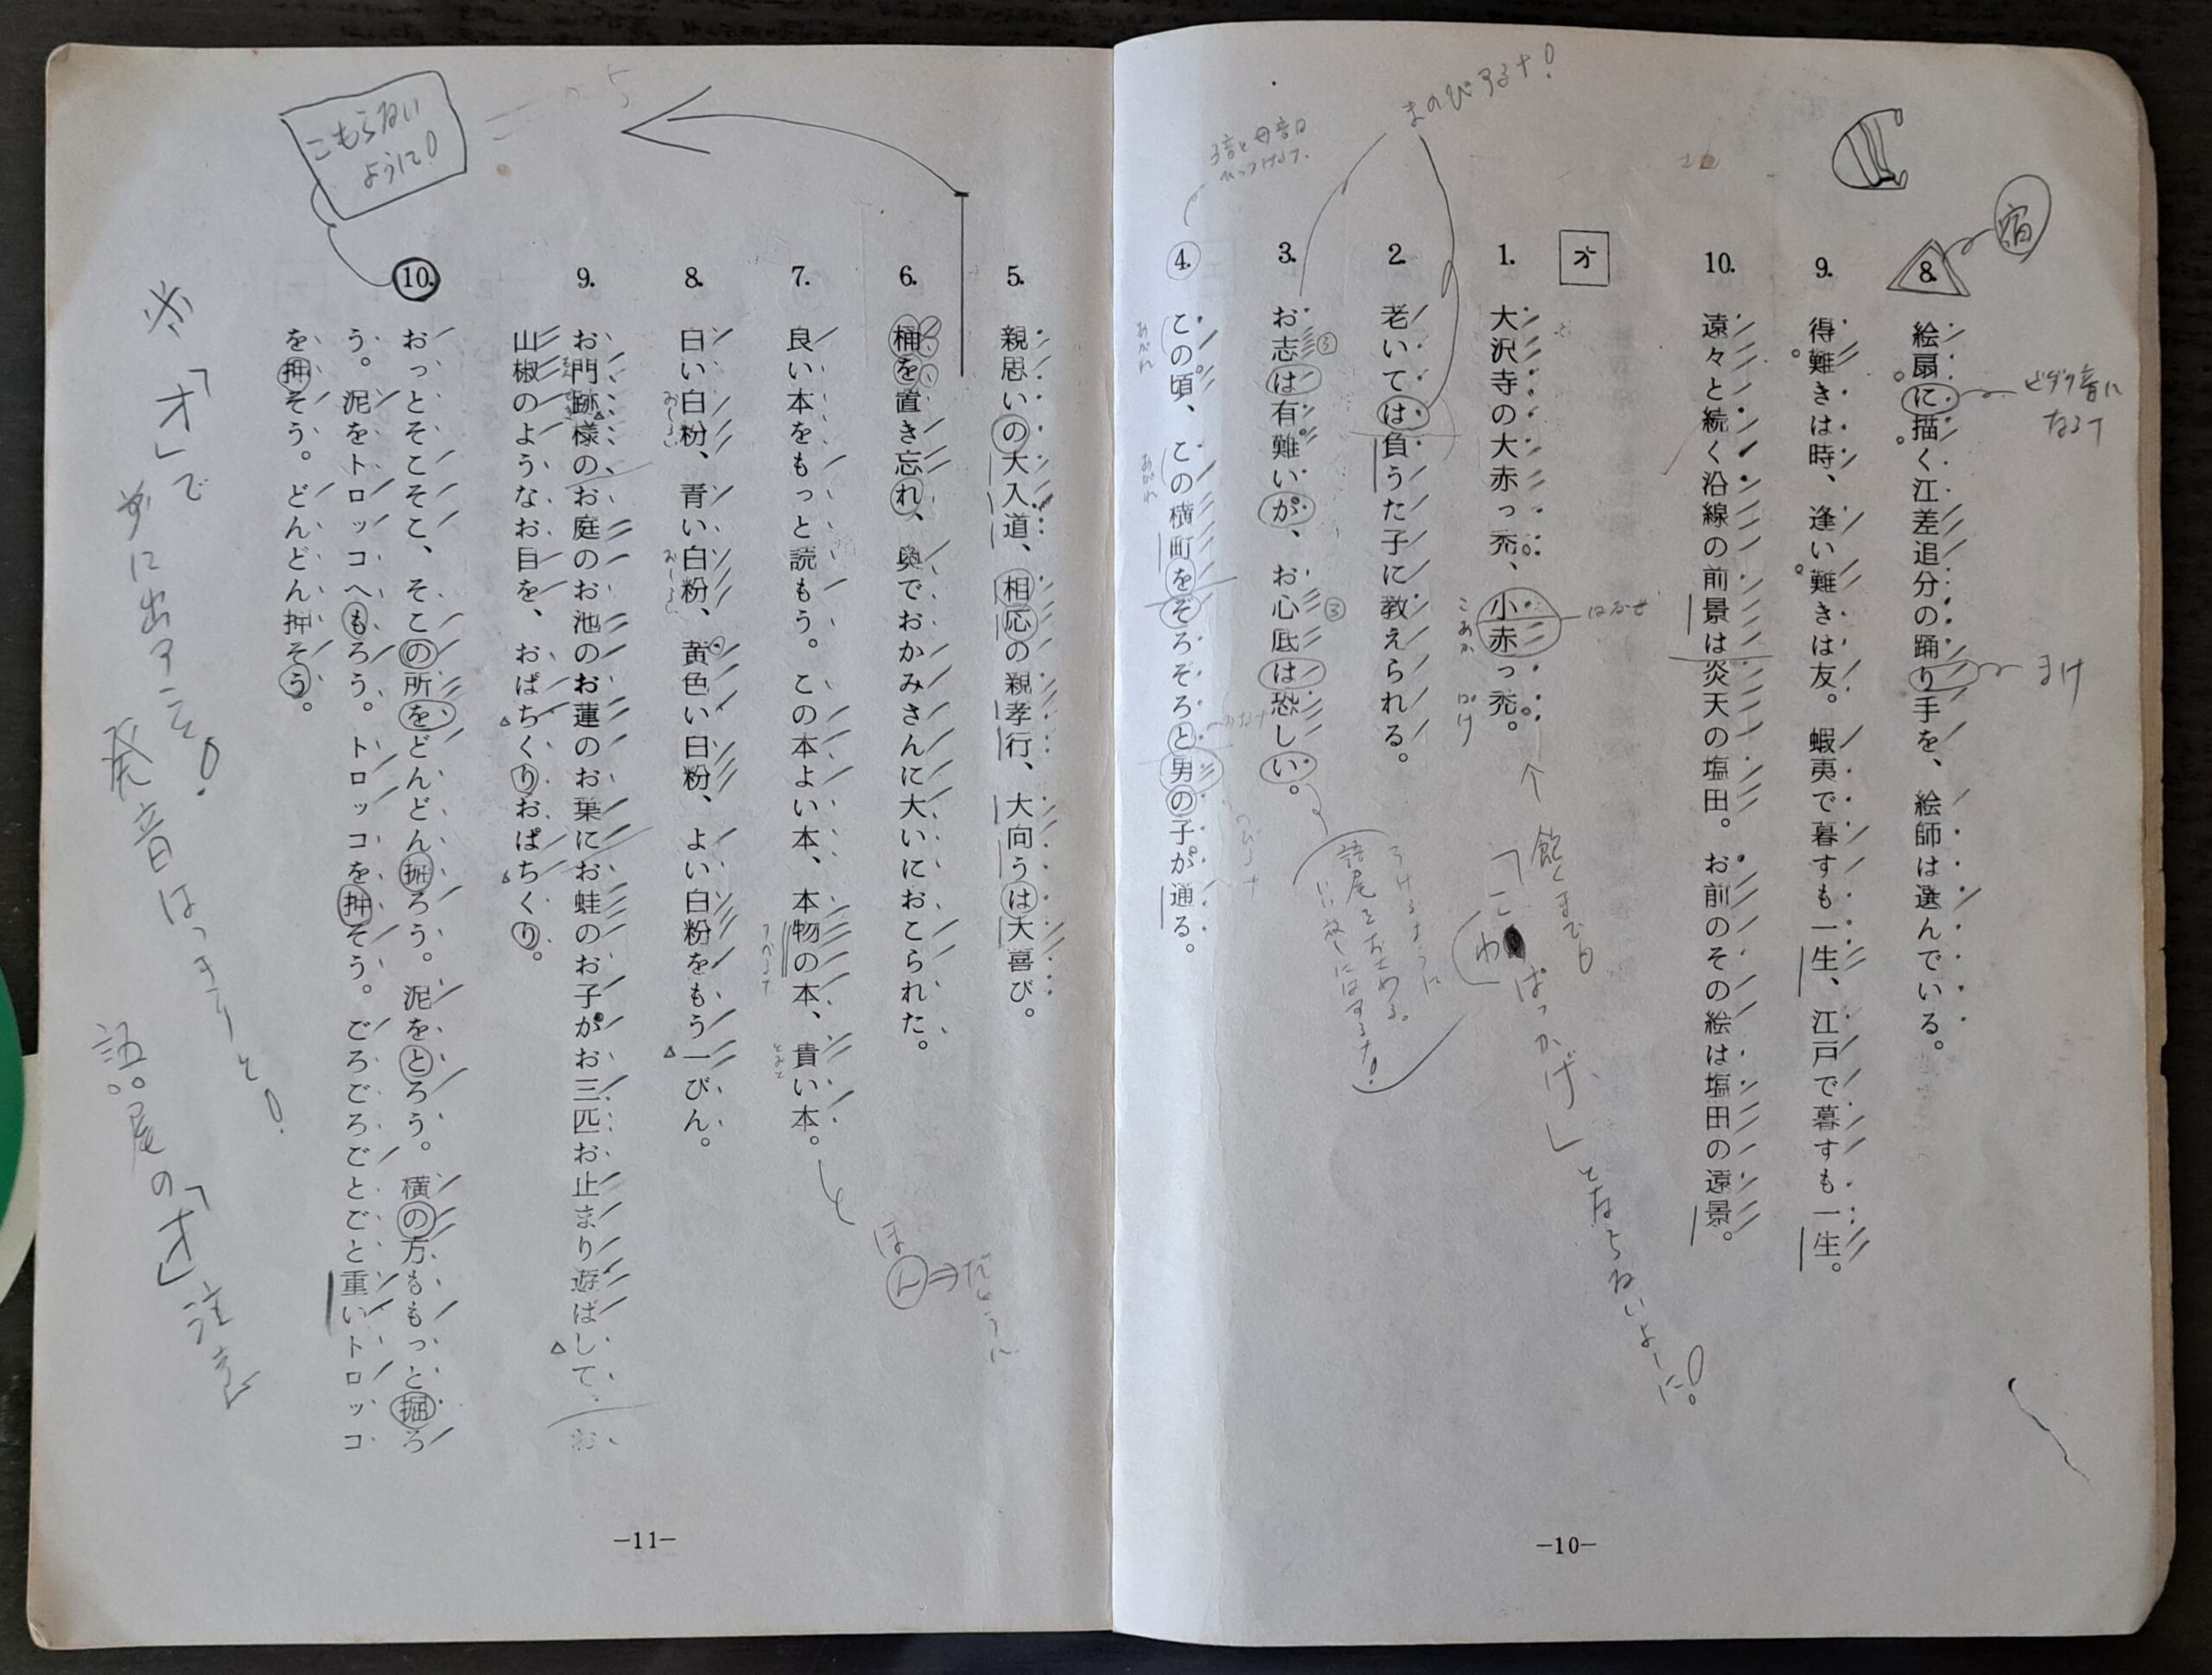 8.
絵扇に描く江差追分の踊り手を、絵師は選んでいる。
宿
まけ
9.
得難きは時、逢い難きは友。蝦夷で暮すも一生、江戸で暮すも一生。
10.
遠々と続く沿線の前景は炎天の塩田。お前のその絵は塩田の遠景。
オ
1.
大沢寺の大赤っ禿、小赤っ禿。
こあか
はげ
飽くまでも
ぱっかげ」とならないよーに!
2.
老いては負うた子に教えられる。
まのびするナ!
3.
お志は有難いが、お心底は恐しい。
うけるように
語尾をおさめる。
いい放しにはするナ!
4.
この頃、この横町をぞろぞろと男の子が通る。
子音と母音は
ひっつけるナ.
-10-
5.
親思いの大入道、相応の親孝行、大向うは大喜び。
6.
桶を置き忘れ、奥でおかみさんに大いにおこられた。
7.
良い本をもっと読もう。この本よい本、本物の本、貴い本。
ほん
8.
白い白粉、青い白粉、黄色い白粉、よい白粉をもう一びん。
おしろい
おしろい
9.
お門跡様のお庭のお池のお蓮のお葉にお蛙のお子がお三匹お止まり遊ばして、お
山椒のようなお目を、おぱちくりおぱちくり。
10.
おっとそこそこ、そこの所をどんどん掘ろう。泥をとろう。横の方ももっと掘ろ
う。泥をトロッコへもろう。トロッコを押そう。ごろごろごとごと重いトロッコ
を押そう。どんどん押そう。
こもらない
ように!
※「オ」で
前に出すこと!
発音はっきりと!
語尾の「オ」注意
-11-